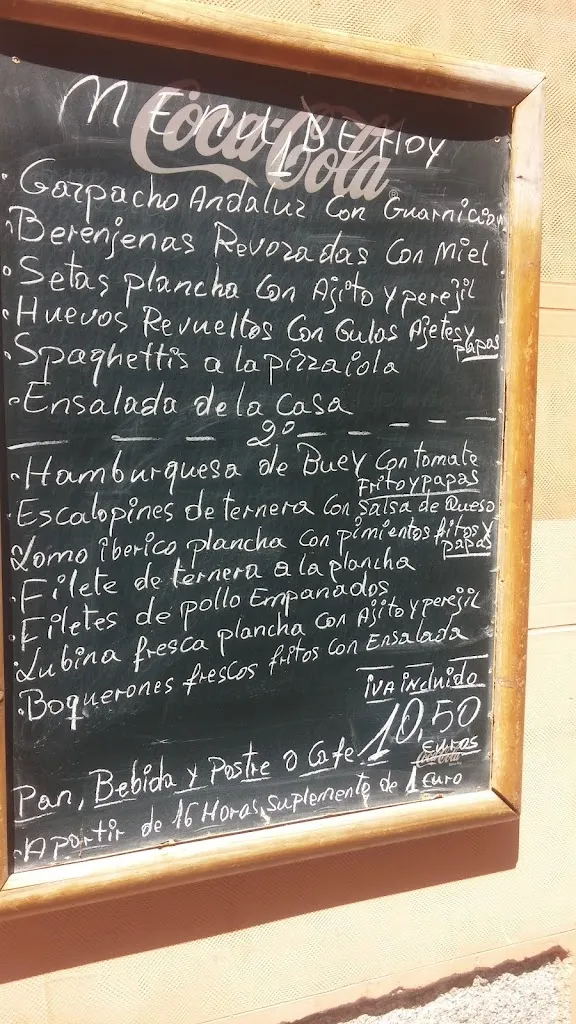 MENU DE HOY
Coca-Cola
1
· Gazpacho Andaluz Con Guarnicion
· Berenjenas Revozadas Con Miel
· Setas plancha Con Ajito y perejil
· Huevos Revueltos Con Gulas Ajetes y
papas
· Spaghettis a la pizzaiola
· Ensalada de la Casa
2º
· Hamburguesa de Buey Con tomate
frito y papas
· Escalopines de ternera Con Salsa de Queso
Lomo iberico plancha con pimientos fritos y
papas
· Filete de ternera a la plancha
· Filetes de pollo Empanados
· Lubina fresca plancha con Ajito y perejil
· Boquerones frescos fritos con Ensalada
iVA incluido
10,50
Euros
Coca-Cola
Pan, Bebida y Postre o Cafe
· A partir de 16 Horas, suplemento de 1 Euro